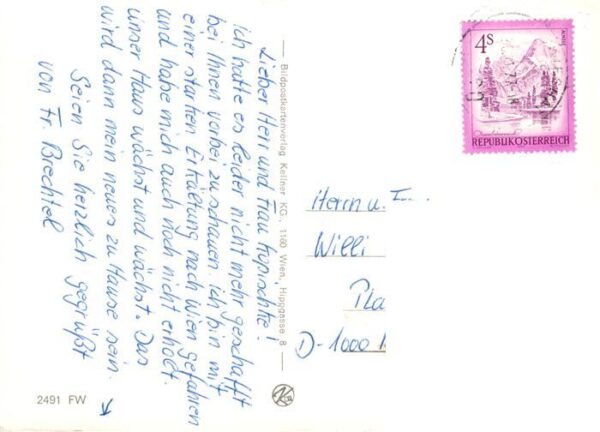 Lieber Herr und Frau Kopischke!
ich hatte es leider nicht mehr geschafft
bei Ihnen vorbei zu schauen ich bin mit
einer starken Erkältung nach Wien gefahren
und habe mich auch noch nicht erholt.
unser Haus wächst und wächst. Das
wird dann mein neues zu Hause sein.
Seien Sie herzlich gegrüßt
von Fr. Brechtel
Bildpostkartenverlag Kellner KG., 1160 Wien, Hipggasse 8
2491 FW
4S
ALMSEE
REPUBLIK ÖSTERREICH
Herrn u.
Willi
Pla
D-1000